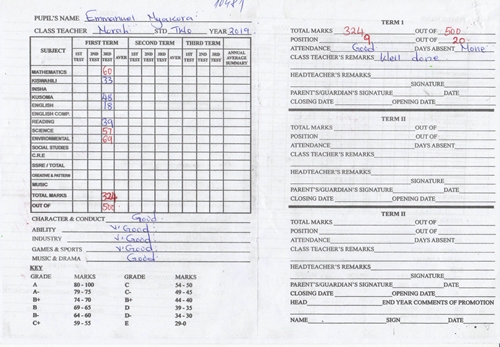 10481
PUPIL'S NAME Emmanuel
CLASS TEACHER Morah STD TWO YEAR 2019
SUBJECT FIRST TERM SECOND TERM THIRD TERM ANNUAL AVERAGE SUMMARY
1ST TEST 2ND TEST 3RD TEST AVER 1ST TEST 2ND TEST 3RD TEST AVER 1ST TEST 2ND TEST 3RD TEST AVER
MATHEMATICS 60
KISWAHILI 33
INSHA
KUSOMA 48
ENGLISH 18
ENGLISH COMP.
READING 39
SCIENCE 57
ENVIRONMENTAL 69
SOCIAL STUDIES
C.R.E
SSRE / TOTAL
CREATIVE & PATTERN
MUSIC
TOTAL MARKS 324
OUT OF 500
CHARACTER & CONDUCT Good
ABILITY V. Good
INDUSTRY V. Good
GAMES & SPORTS V. Good
MUSIC & DRAMA Good
KEY
GRADE MARKS GRADE MARKS
A 80 - 100 C 54 - 50
A- 79 - 75 C- 49 - 45
B+ 74 - 70 D+ 44 - 40
B 69 - 65 D 39 - 35
B- 64 - 60 D- 34 - 30
C+ 59 - 55 E 29-0
TERM I
TOTAL MARKS 324 OUT OF 500
POSITION 9 OUT OF 20
ATTENDANCE Good DAYS ABSENT None
CLASS TEACHER'S REMARKS Well done
HEADTEACHER'S REMARKS
SIGNATURE
PARENT'S/GUARDIAN'S SIGNATURE DATE
CLOSING DATE OPENING DATE
TERM II
TOTAL MARKS OUT OF
POSITION OUT OF
ATTENDANCE DAYS ABSENT
CLASS TEACHER'S REMARKS
HEADTEACHER'S REMARKS
SIGNATURE
PARENT'S/GUARDIAN'S SIGNATURE DATE
CLOSING DATE OPENING DATE
TERM II
TOTAL MARKS OUT OF
POSITION OUT OF
ATTENDANCE DAYS ABSENT
CLASS TEACHER'S REMARKS
HEADTEACHER'S REMARKS
SIGNATURE
PARENT'S/GUARDIAN'S SIGNATURE DATE
CLOSING DATE OPENING DATE
HEAD END YEAR COMMENTS OF PROMOTION
NAME SIGN DATE